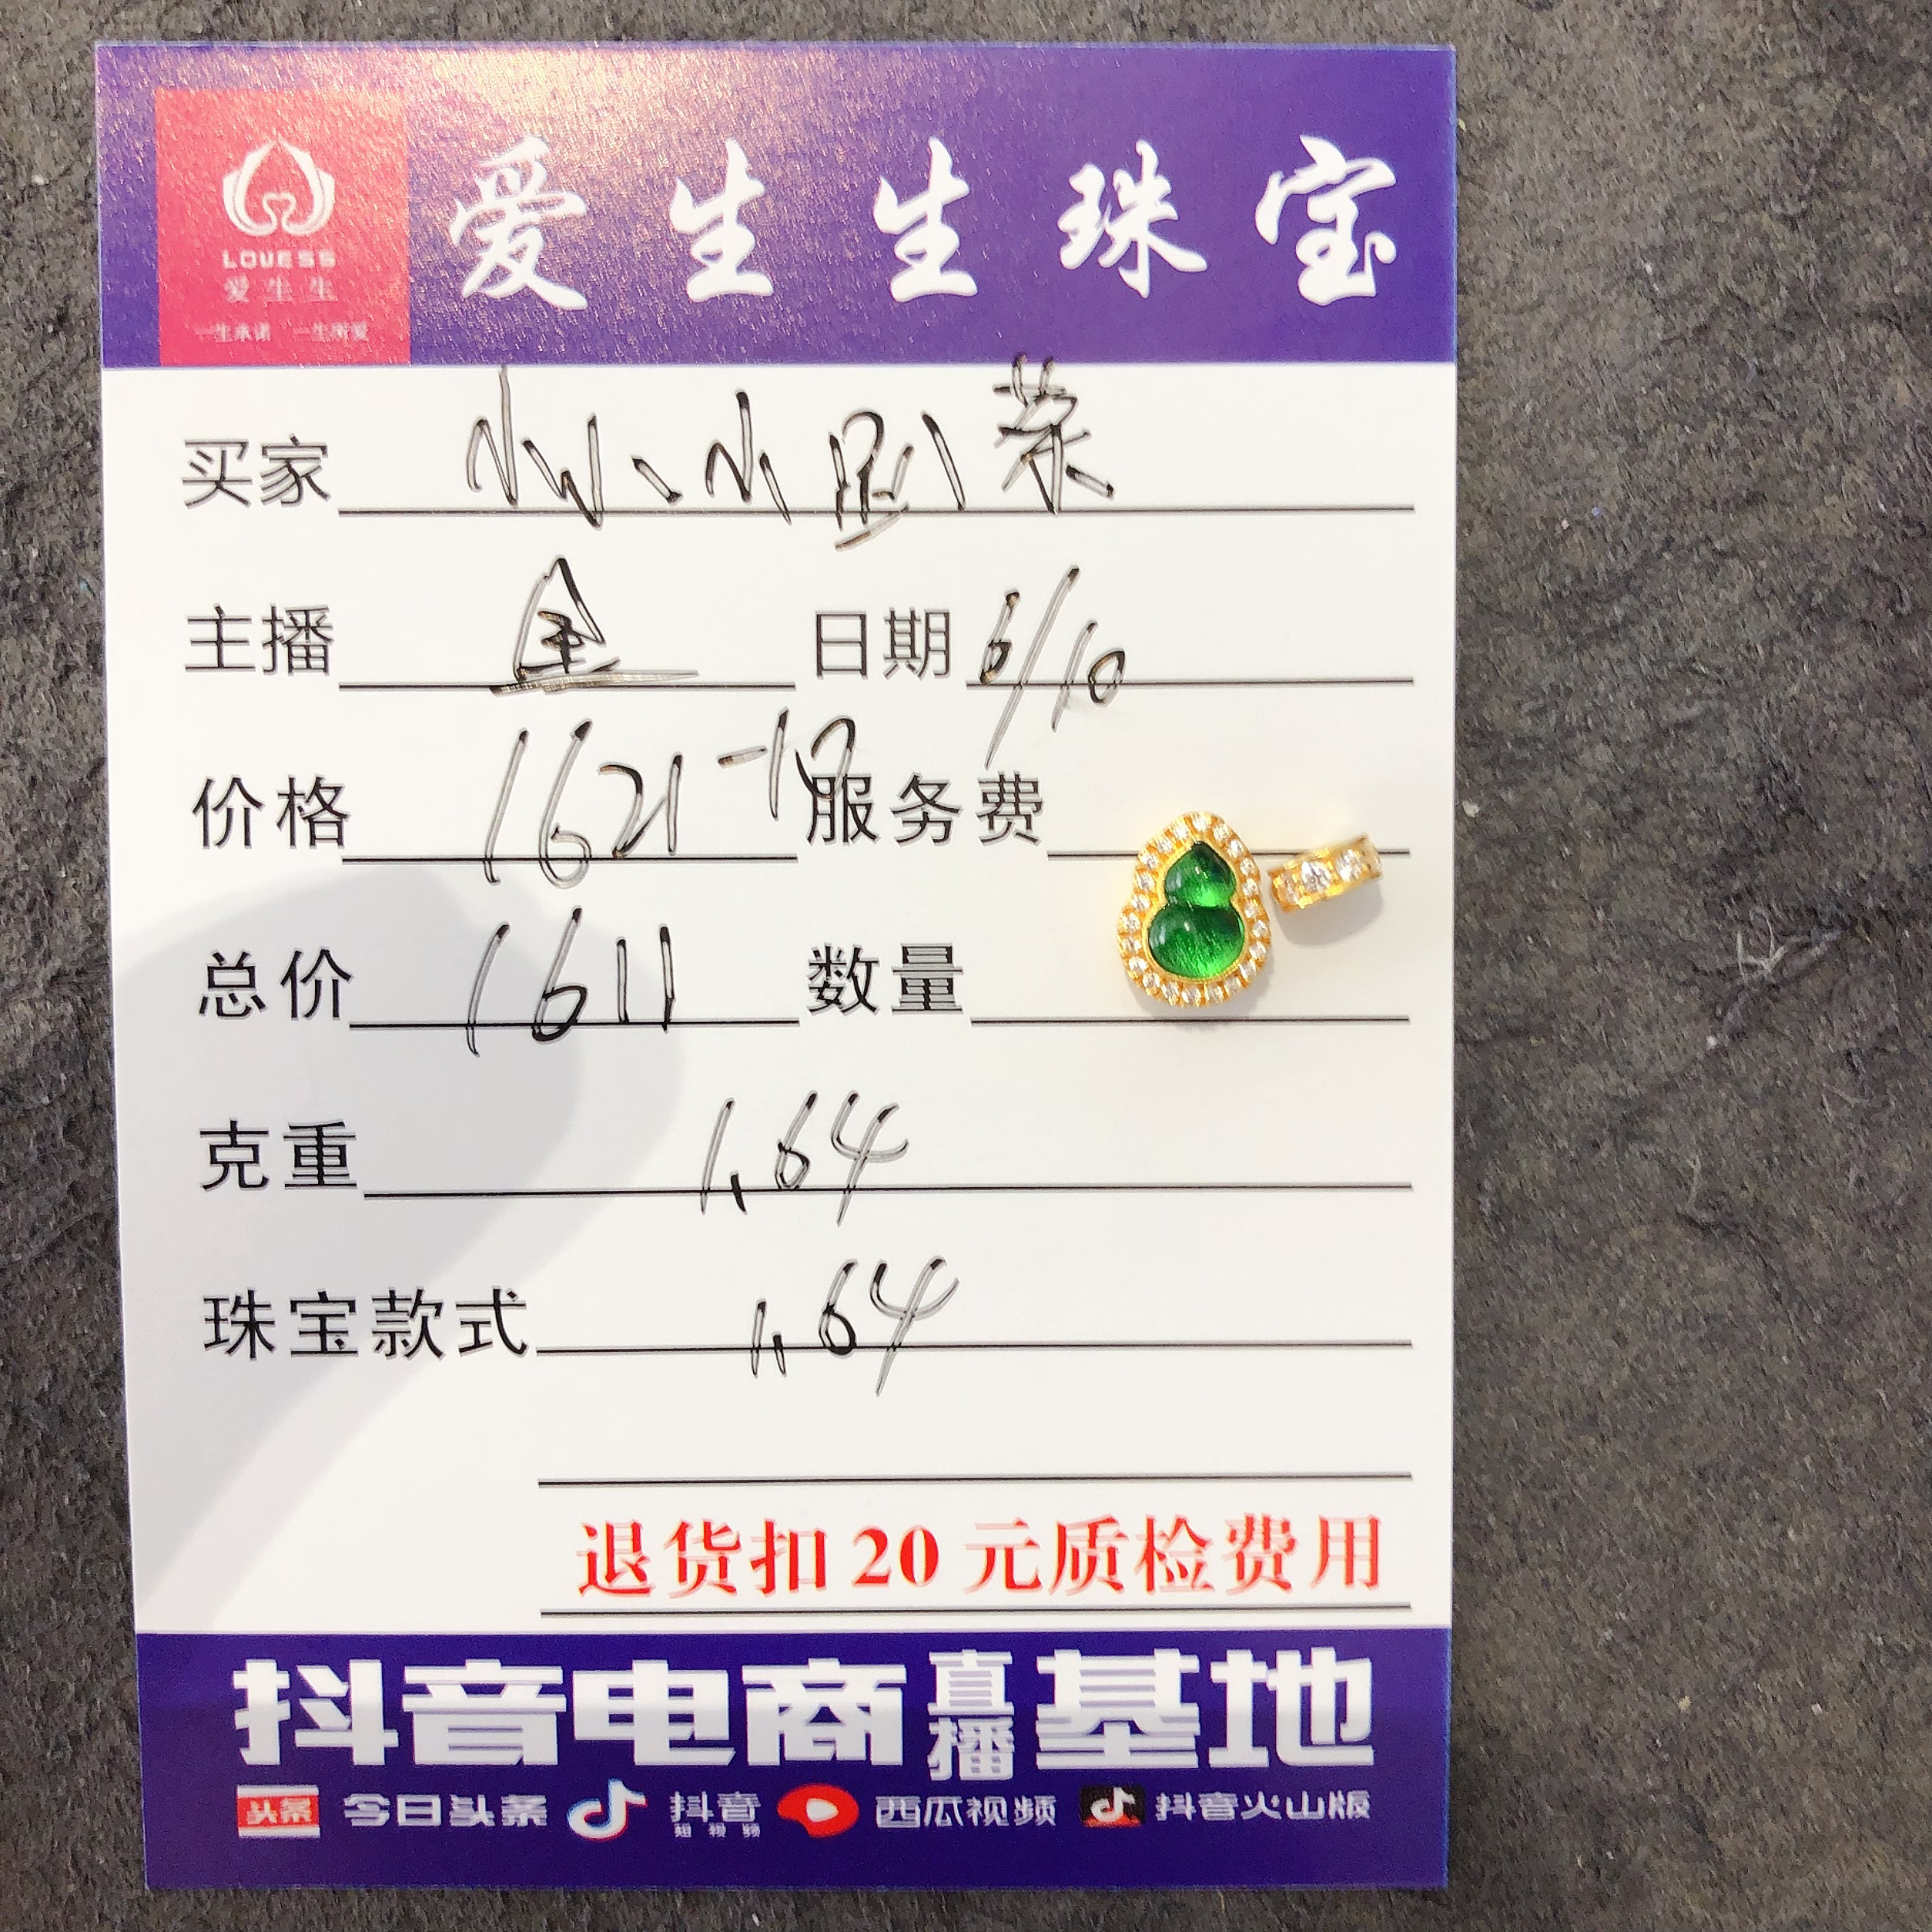 爱生生珠宝
LOVESS
爱生生
一生承诺 一生所爱
买家
主播 金 日期 6/10
价格 1621 -10 服务费
总价 1611 数量
克重 1.64
珠宝款式 1.64
退货扣20元质检费用
抖音电商直播基地
头条 今日头条 抖音短视频 西瓜视频 抖音火山版